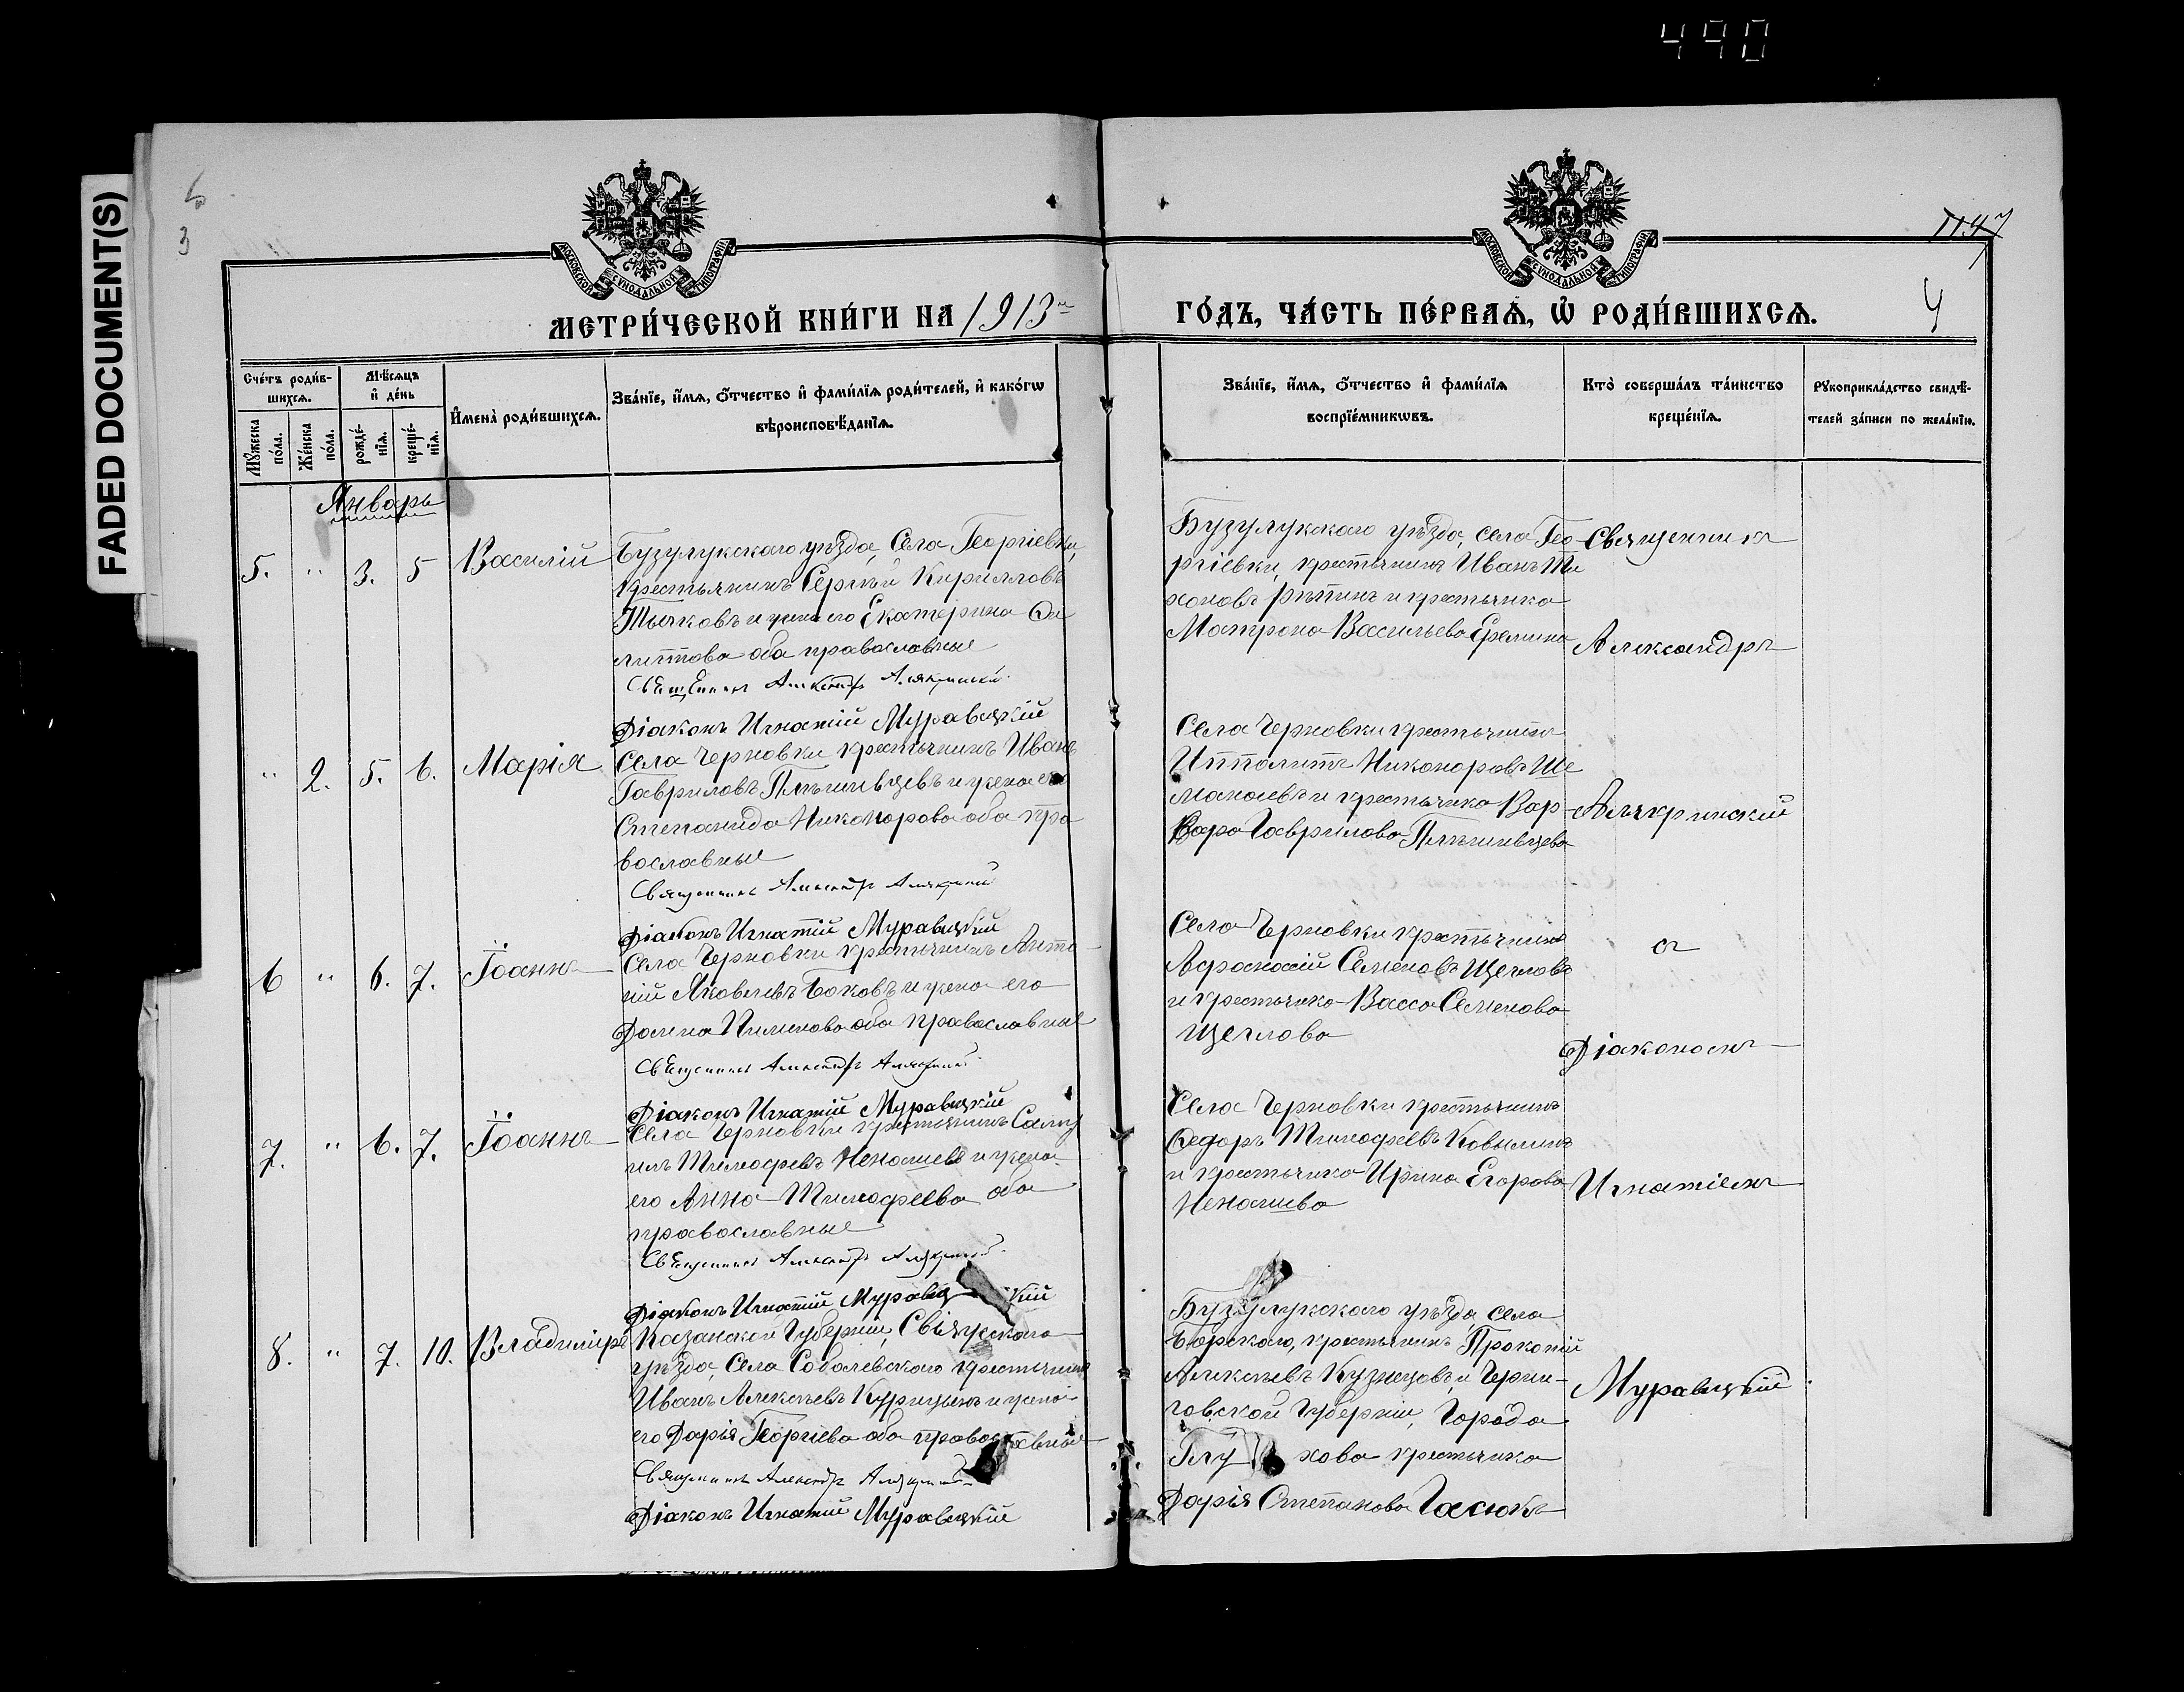 490
FADED DOCUMENT(S)
3
1147
4
МОСКОВСКОЙ СѴНОДАЛЬНОЙ ТИПОГРАФІИ
МОСКОВСКОЙ СѴНОДАЛЬНОЙ ТИПОГРАФІИ
МЕТРИ́ЧЕСКОЙ КНИ́ГИ НА 1913 й
ГО́ДЪ, ЧА́СТЬ ПЕ́РВАѦ, Ѡ҆ РОДИ́ВШИХСѦ.
Сче́тъ роди́в-
шихсѧ.
Мꙋ́жеска по́ла.
Же́нска по́ла.
Мѣ́сѧцъ
и҆ де́нь
рожде́-
нїѧ.
креще́-
нїѧ.
И҆мена̀ роди́вшихсѧ.
Зва́нїе, и҆́мѧ, ѻ҆́тчество и҆ фами́лїѧ роди́телей, и҆ како́гѡ
вѣроисповѣ́данїѧ.
Зва́нїе, и҆́мѧ, ѻ҆́тчество и҆ фами́лїѧ
воспрїе́мникѡвъ.
Кто̀ соверша́лъ та́инство
креще́нїѧ.
Рꙋкоприкла́дство свидѣ́-
телей за́писи по жела́нїю.
Январь
5. " 3. 5 Василій
Бузулукскаго уѣзда, Села Георгіевки,
крестьянинъ Сергѣй Кирилловъ
Тычковъ и жена его Екатерина Фи
липпова оба православные
Священникъ Александръ Алякринскій
Діаконъ Игнатій Муравицкій
Бузулукскаго уѣзда, села Гео
ргіевки, крестьянинъ Иванъ Ти
хоновъ Рѣпинъ и крестьянка
Матрона Васильева Еремина
Священника
Александра
" 2. 5. 6. Марія
Села Черновки крестьянинъ Иванъ
Гавриловъ Плѣшивцевъ и жена его
Степанида Никонорова оба пра
вославные
Священникъ Александръ Алякринскій
Діаконъ Игнатій Муравицкій
Села Черновки крестьянинъ
Ипполитъ Никоноровъ Ше
манаевъ и крестьянка Вар-
вара Гаврилова Плѣшивцева
Алякринскій
6 " 6. 7. Іоаннъ
Села Черновки крестьянинъ Анто
ній Яковлевъ Боковъ и жена его
Домна Пименова оба православные
Священникъ Александръ Алякринскій
Діаконъ Игнатій Муравицкій
Села Черновки крестьянинъ
Афанасій Семеновъ Щегловъ
и крестьянка Васса Семенова
Щеглова
с
Діакономъ
7. " 6. 7. Іоаннъ
Села Черновки крестьянинъ Саму
илъ Тимофеевъ Ненашевъ и жена
его Анна Тимофеева оба
православные
Священникъ Александръ Алякринскій
Діаконъ Игнатій Муравицкій
Села Черновки крестьянинъ
Федоръ Тимофеевъ Ковылинъ
и крестьянка Ирина Егорова
Ненашева
Игнатіемъ
8. " 7. 10. Владиміръ
Казанской Губерніи, Свіяжскаго
уѣзда, Села Соболевскаго крестьянинъ
Иванъ Алексѣевъ Курицынъ и жена
его Дарія Георгіева оба православные
Священникъ Александръ Алякринскій
Діаконъ Игнатій Муравицкій
Бузулукскаго уѣзда, села
Борскаго, крестьянинъ Прокопій
Алексѣевъ Кузнецовъ, и Черни-
говской Губерніи, Города
Глухова крестьянка
Дарія Степанова Гасюкъ
Муравицкій